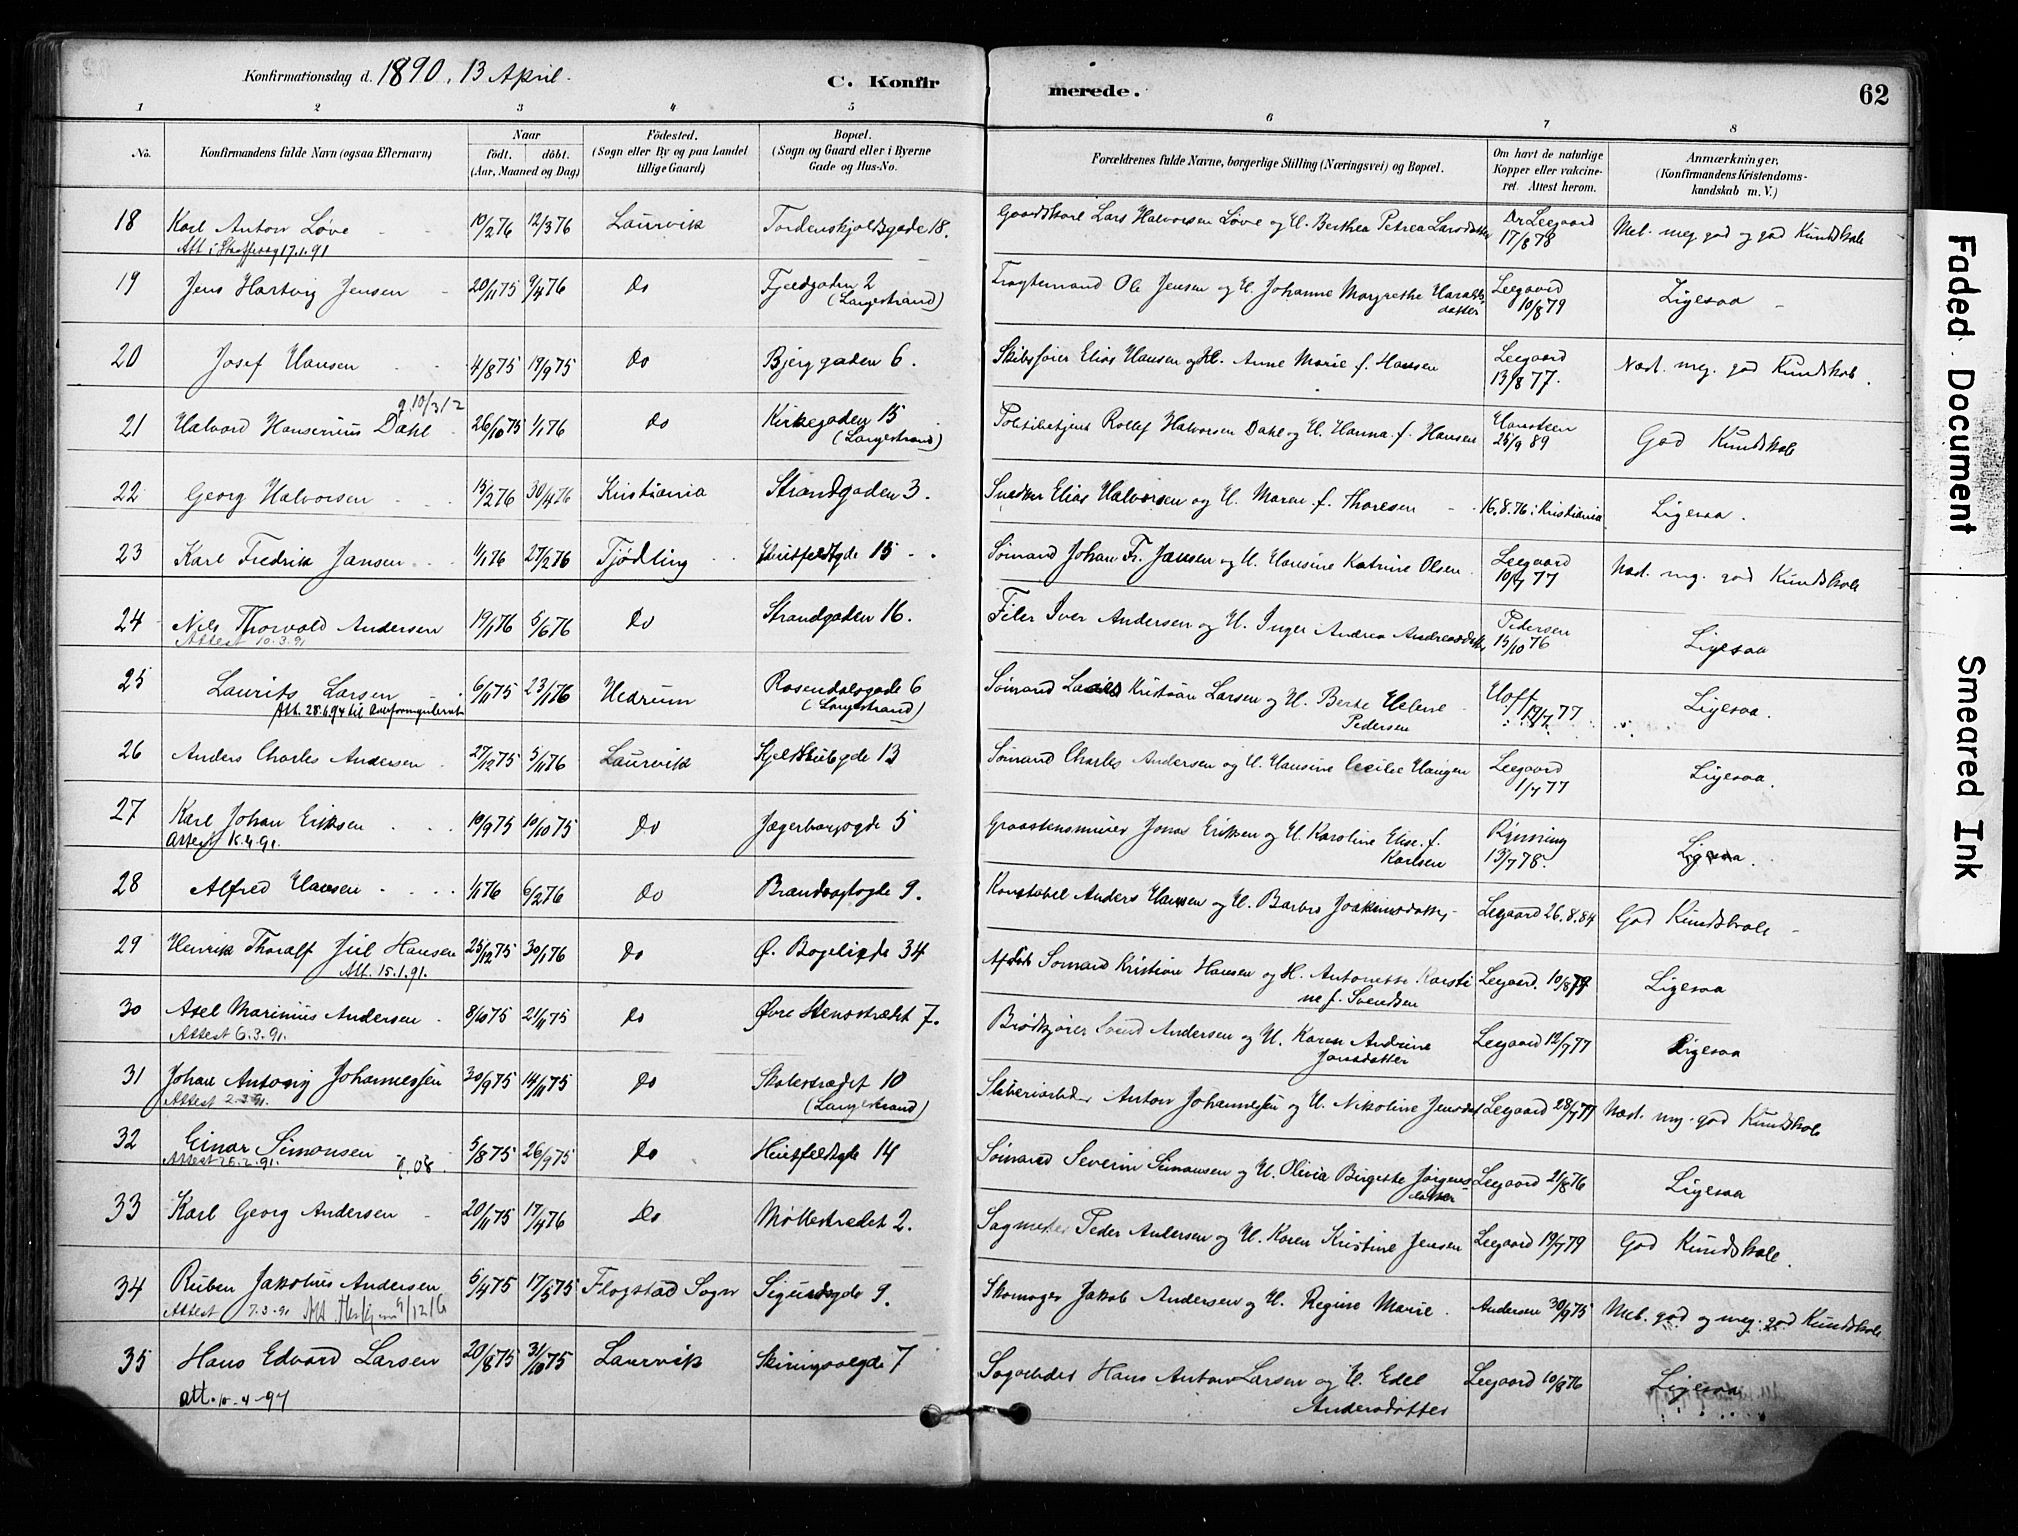 Konfirmationsdag d. 1890, 13 April.
C. Konfirmerede.
62
1 2 3 4 5 6 7 8
No. Konfirmandens fulde Navn (ogsaa Efternavn) Naar födt. döbt. (Aar, Maaned og Dag) Födested. (Sogn eller By og paa Landet tillige Gaard) Bopæl. (Sogn og Gaard eller i Byerne Gade og Hus-No. Forældrenes fulde Navne, borgerlige Stilling (Næringsvei) og Bopæl. Om havt de naturlige Kopper eller vakcineret. Attest herom. Anmærkninger, (Konfirmandens Kristendomskundskab m. V.)
18 Karl Anton Løve 10/2 76 12/3 76 Laurvik Tordenskjoldsgade 18. Gaardskarl Lars Halvorsen Løve og H. Berthea Petrea Larsdatter Dr Leegaard 17/8 78 Mel. meg. god og god Kundskab
17.1.91
19 Jens Hartvig Jensen 20/11 75 9/4 76 Do Fjeldgaden 2 (Langestrand) Fragtemand Ole Jensen og H. Johanne Margrethe Haraldsdatter Leegaard 10/8 79 Ligesaa
20 Josef Hansen 4/8 75 19/9 75 Do Bjerggaden 6. Skibsfører Elias Hansen og H. Anne Marie f. Hansen Leegaard 13/8 77. Næst. meg. god Kundskab.
g. 10/3 12
21 Halvard Hanserius Dahl 26/10 75 1/1 76 Do Kirkegaden 15 (Langestrand) Politibetjent Rollef Halvorsen Dahl og H. Hanna f. Hansen Hansteen 25/9 89 God Kundskab
22 Georg Halvorsen 15/2 76 30/4 76 Kristiania Strandgaden 3. Snedker Elias Halvorsen og H. Maren f. Thoresen 16.8.76 i Kristiania Ligesaa.
23 Karl Fredrik Jansen 1/1 76 27/2 76 Tjødling Huitfeldtgde 15 Sømand Johan Fr. Jansen og H. Hansine Katrine Olsen Leegaard 10/7 77 Næst. mg. god Kundskab
24 Nils Thorvald Andersen 19/1 76 5/6 76 Do Strandgaden 16. Filer Iver Andersen og H. Inger Andrea Andreasdatter Pedersen 15/10 76 Ligesaa
Attest 10.3.91
25 Laurits Larsen 6/11 75 23/1 76 Hedrum Rosendalsgade 6 (Langestrand) Sømand Kristian Larsen og H. Berte Helene Pedersen Hoft 19/7 77 Ligesaa.
Att. 28.6.94 til
26 Anders Charles Andersen 27/12 75 5/11 76 Laurvik 13 Sømand Charles Andersen og H. Hansine Cecilie Haugen Leegaard 1/7 77 Ligesaa.
27 Karl Johan Eriksen 10/9 75 10/10 75 Do Jegerborggde 5 Graastensmurer Jonas Eriksen og H. Karoline Elise f. Karlsen Rynning 13/7 78. Ligesaa.
Attest 16.4.91.
28 Alfred Hansen 1/1 76 6/2 76 Do Brandvagtsgde 9. Konstabel Anders Hansen og H. Barbro Joakimsdatter Leegaard 26.8.84 God Kundskab
29 Henrik Thoralf Juel Hansen 25/12 75 30/1 76 Do Ø. Bøgeligde 34 Sømand Kristian Hansen og H. Antonette Karstine f. Svendsen Leegaard. 10/8 77 Ligesaa
Att. 15.1.91.
30 Axel Marinius Andersen 8/10 75 21/11 75 Do Øvre Stenstrædet 7. Brødkjører Svend Andersen og H. Karen Andrine Jonsdatter Leegaard 12/7 77 Ligesaa
Attest 6.3.91.
31 Johan Antonij Johannessen 30/9 75 14/11 75 Do Skolestrædet 10 (Langestrand) Sliberiarbeider Anton Johannessen og H. Nikoline Jensdat Leegaard 28/7 77 Næst. mg. god Kundskab
Attest 2.3.91.
32 Einar Simonsen 5/8 75 26/9 75 Do Huitfeldtgde 14 Sømand Severin Simonsen og H. Olivia Birgitte Jørgensdatter Leegaard 21/8 76 Ligesaa
Attest 25.2.91.
33 Karl Georg Andersen 20/11 75 17/4 76 Do Møllestrædet 2. Sagmester Peder Andersen og H. Karen Kristine Jensen Leegaard 19/7 79 God Kundskab.
34 Ruben Jakobus Andersen 5/4 75 17/5 75 Flogstad Sogn Sigurdsgde 9. Skomager Jakob Andersen og H. Regine Marie. Andersen 30/9 75 Mel. god og meg. god Kundskab
Attest 7.3.91 Att. 9/12 16
35 Hans Edvard Larsen 20/8 75 31/10 75 Laurvik Skiringsalgde 7 Sagarbeider Hans Anton Larsen og H. Edel Andersdatter Leegaard 10/8 76 Ligesaa
att. 10-4-97
Faded Document
Smeared Ink